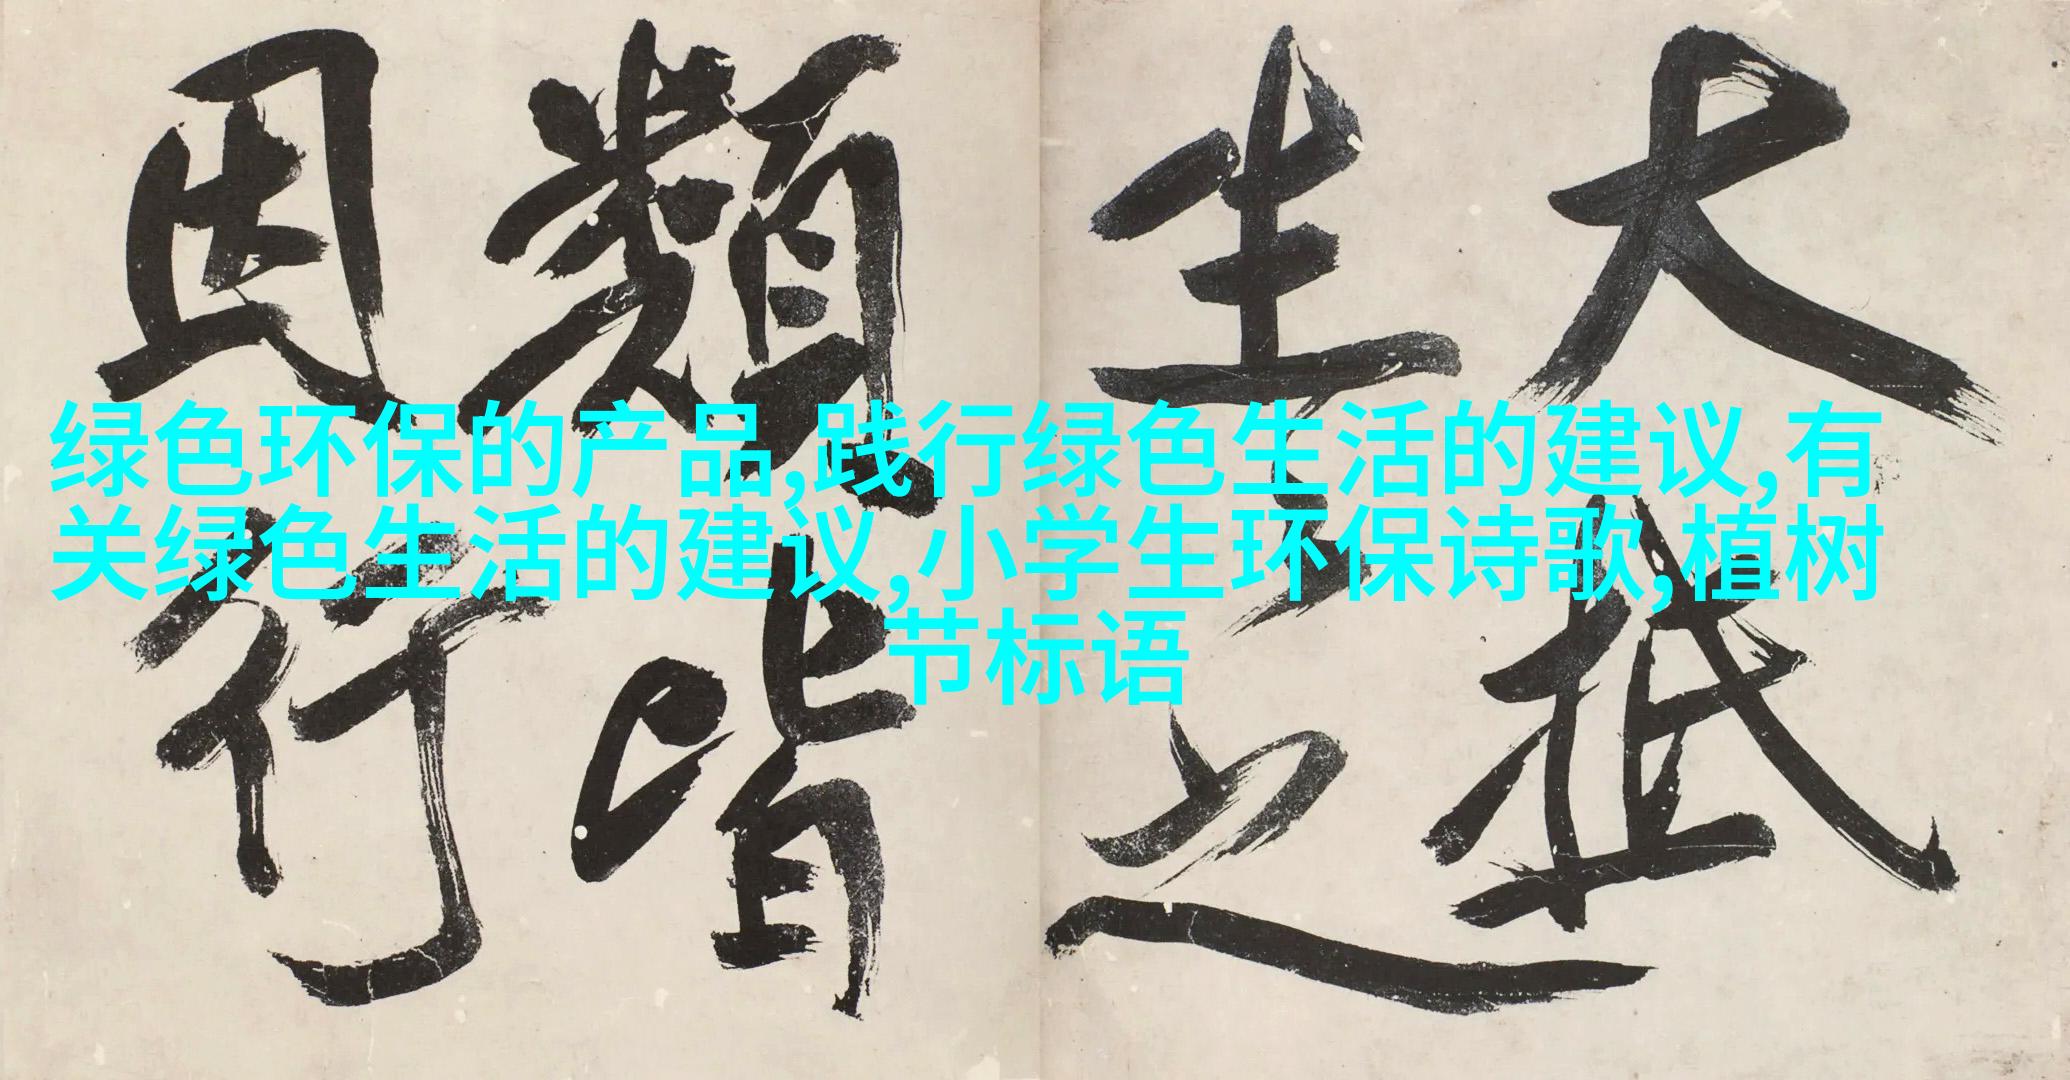 大抵
生之
類皆
因行
绿色环保的产品,践行绿色生活的建议,有
关绿色生活的建议,小学生环保诗歌,植树
节标语